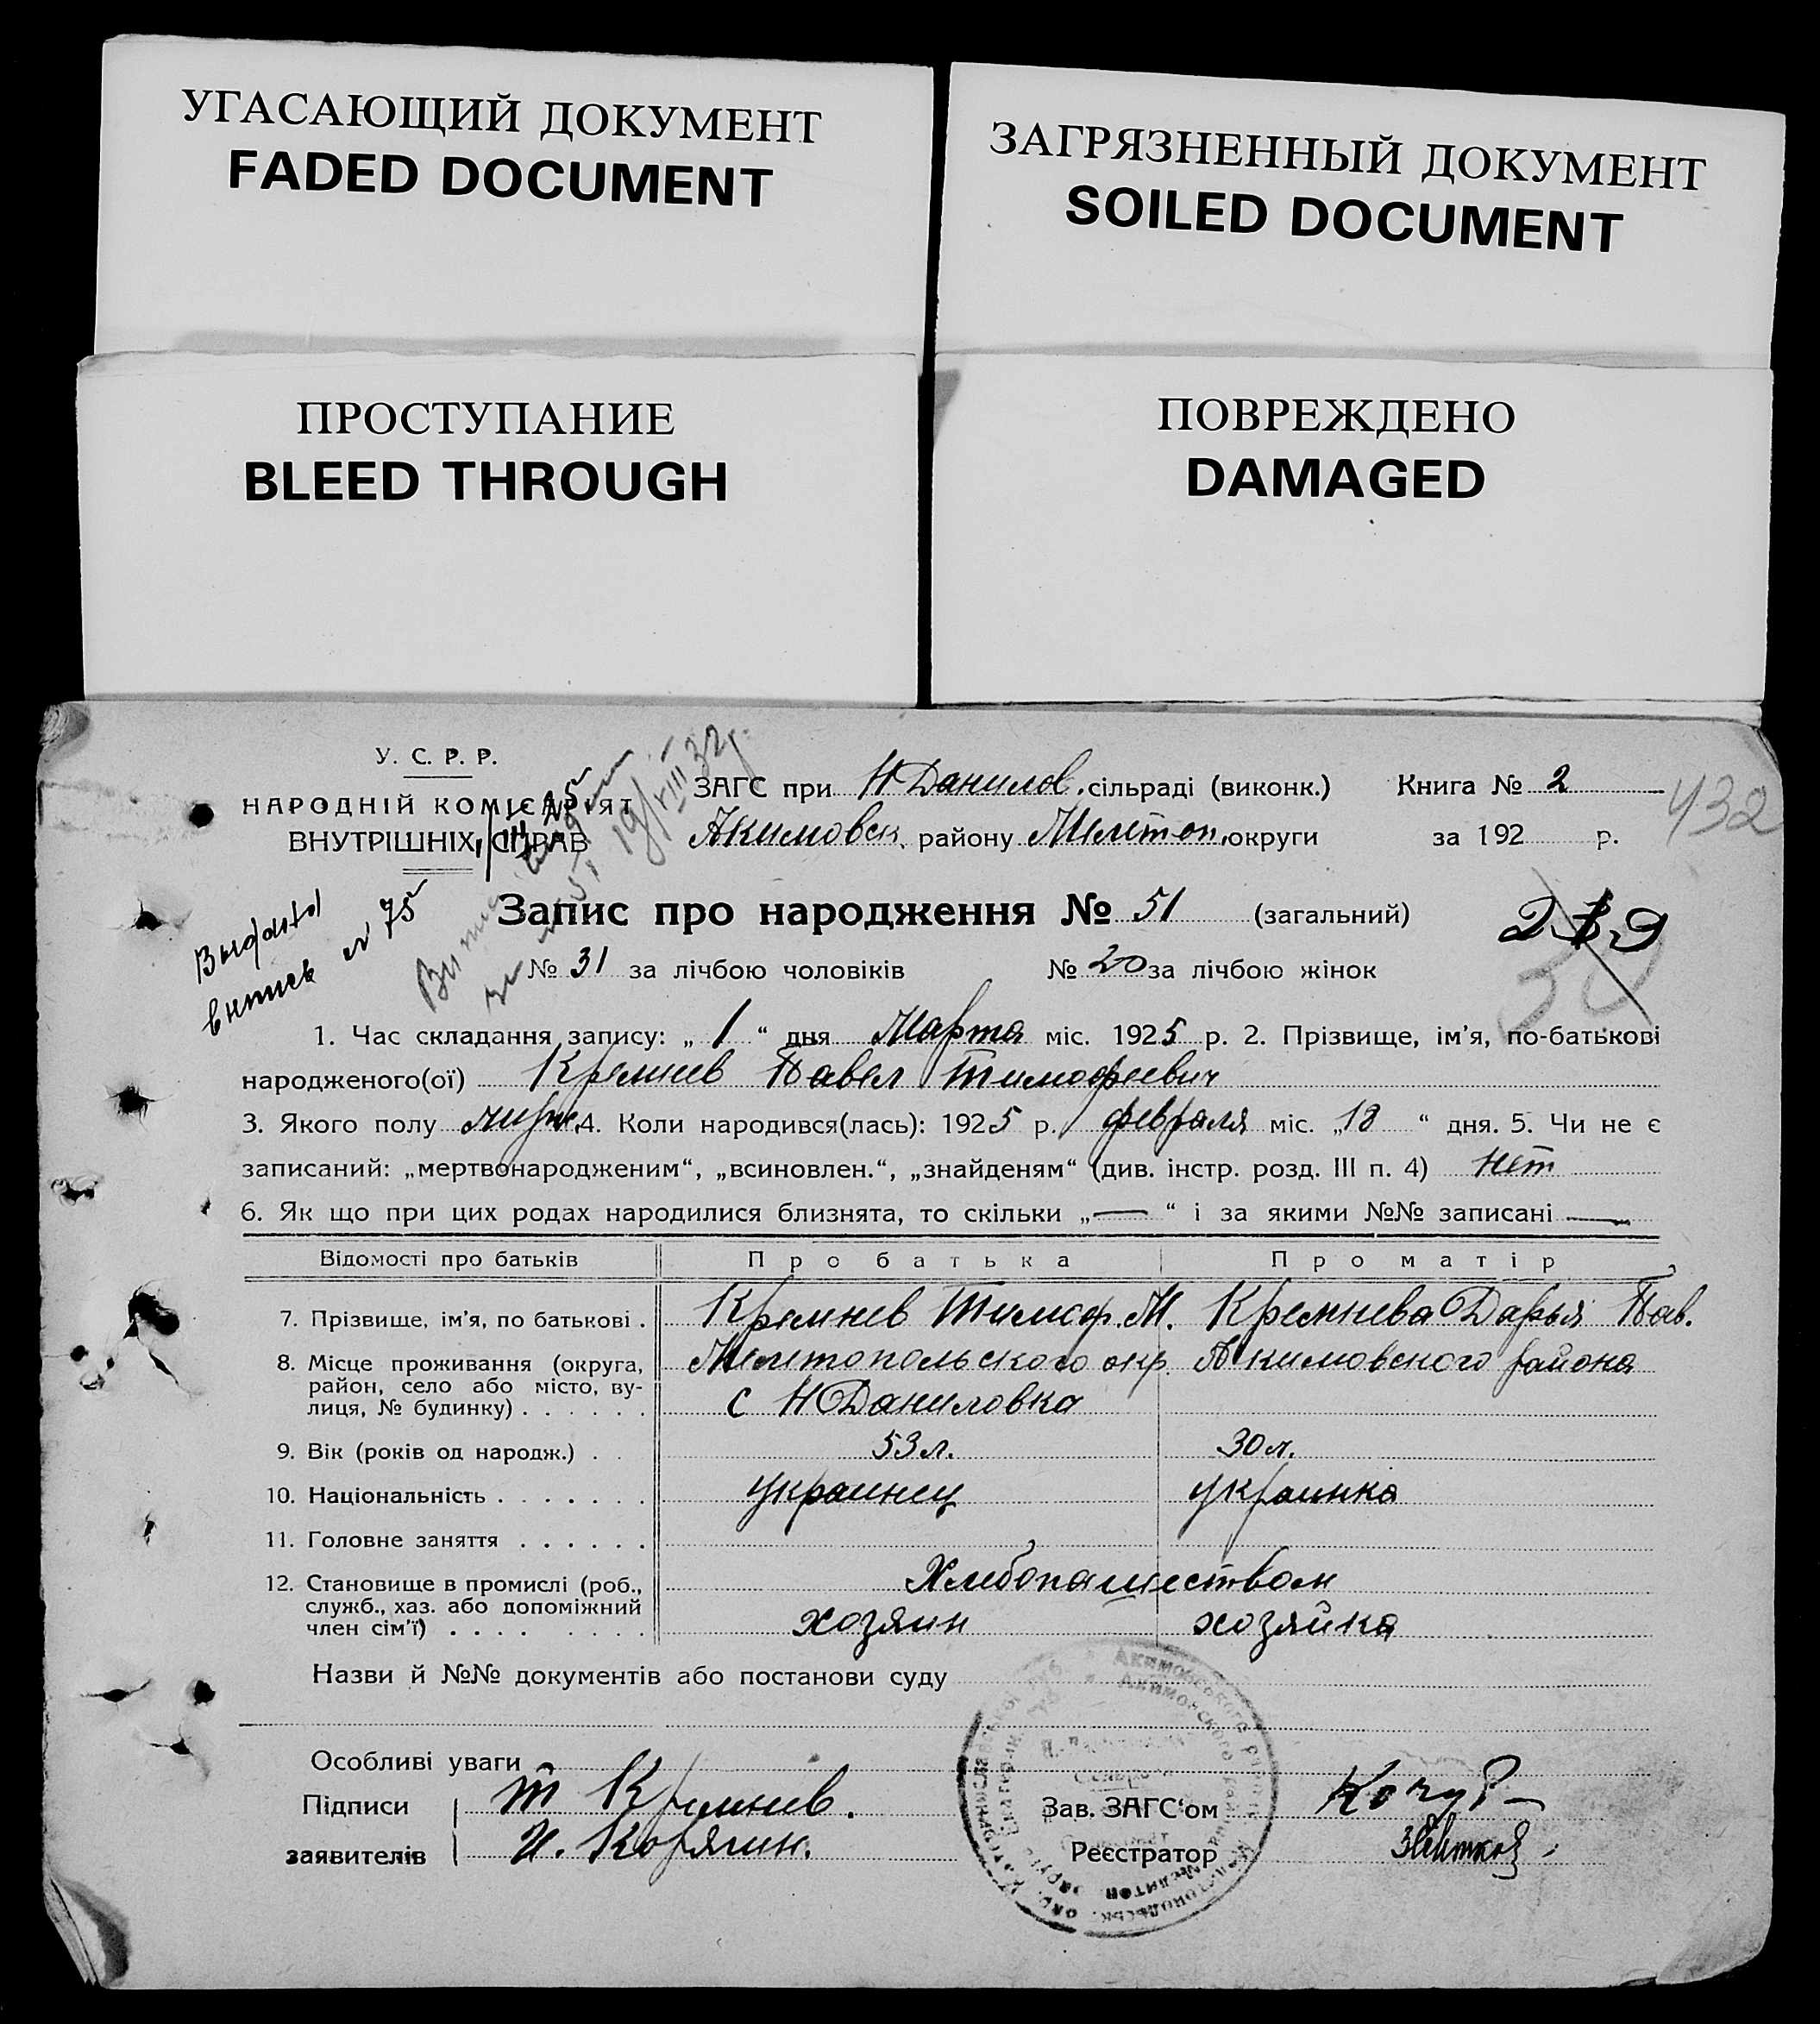 УГАСАЮЩИЙ ДОКУМЕНТ
FADED DOCUMENT
ЗАГРЯЗНЕННЫЙ ДОКУМЕНТ
SOILED DOCUMENT
ПРОСТУПАНИЕ
BLEED THROUGH
ПОВРЕЖДЕНО
DAMAGED
У. С. Р. Р.
НАРОДНІЙ КОМІСАРІЯТ
ВНУТРІШНІХ СПРАВ
19/VIII 32г.
ЗАГС при Н Данилов. сільраді (виконк.) Книга № 2
Акимовск. району Мелітоп. округи за 192 р.
432
Выдана
выпись № 75
Запис про народження № 51 (загальний)
№ 31 за лічбою чоловіків № 20 за лічбою жінок
1. Час складання запису: „ 1 “ дня Марта міс. 1925 р. 2. Прізвище, ім'я, по-батькові
народженого(ої) Кремнев Павел Тимофеевич
3. Якого полу мужс. 4. Коли народився(лась): 1925 р. февраля міс. „18 “ дня. 5. Чи не є
записаний: „мертвонародженим“, „всиновлен.“, „знайденям“ (див. інстр. розд. III п. 4) Нет
6. Як що при цих родах народилися близнята, то скільки „— “ і за якими №№ записані —
Відомості про батьків Про батька Про матір
7. Прізвище, ім'я, по батькові . Кремнев Тимоф. М. Кремнева Дарья Пав.
8. Місце проживання (округа, Мелитопольского окр. Акимовского района
район, село або місто, ву-
лиця, № будинку) . . . . . . с Н Даниловка
9. Вік (років од народж.) . . 53 л. 30 л.
10. Національність . . . . . . . украинец украинка
11. Головне заняття . . . . . .
12. Становище в промислі (роб., Хлебопашеством
служб., хаз. або допоміжний
член сім'ї) . . . . . . . . хозяин хозяйка
Назви й №№ документів або постанови суду
Особливі уваги
Підписи Т Кремнев. Зав. ЗАГС'ом
заявителів И. Корягин. Реєстратор